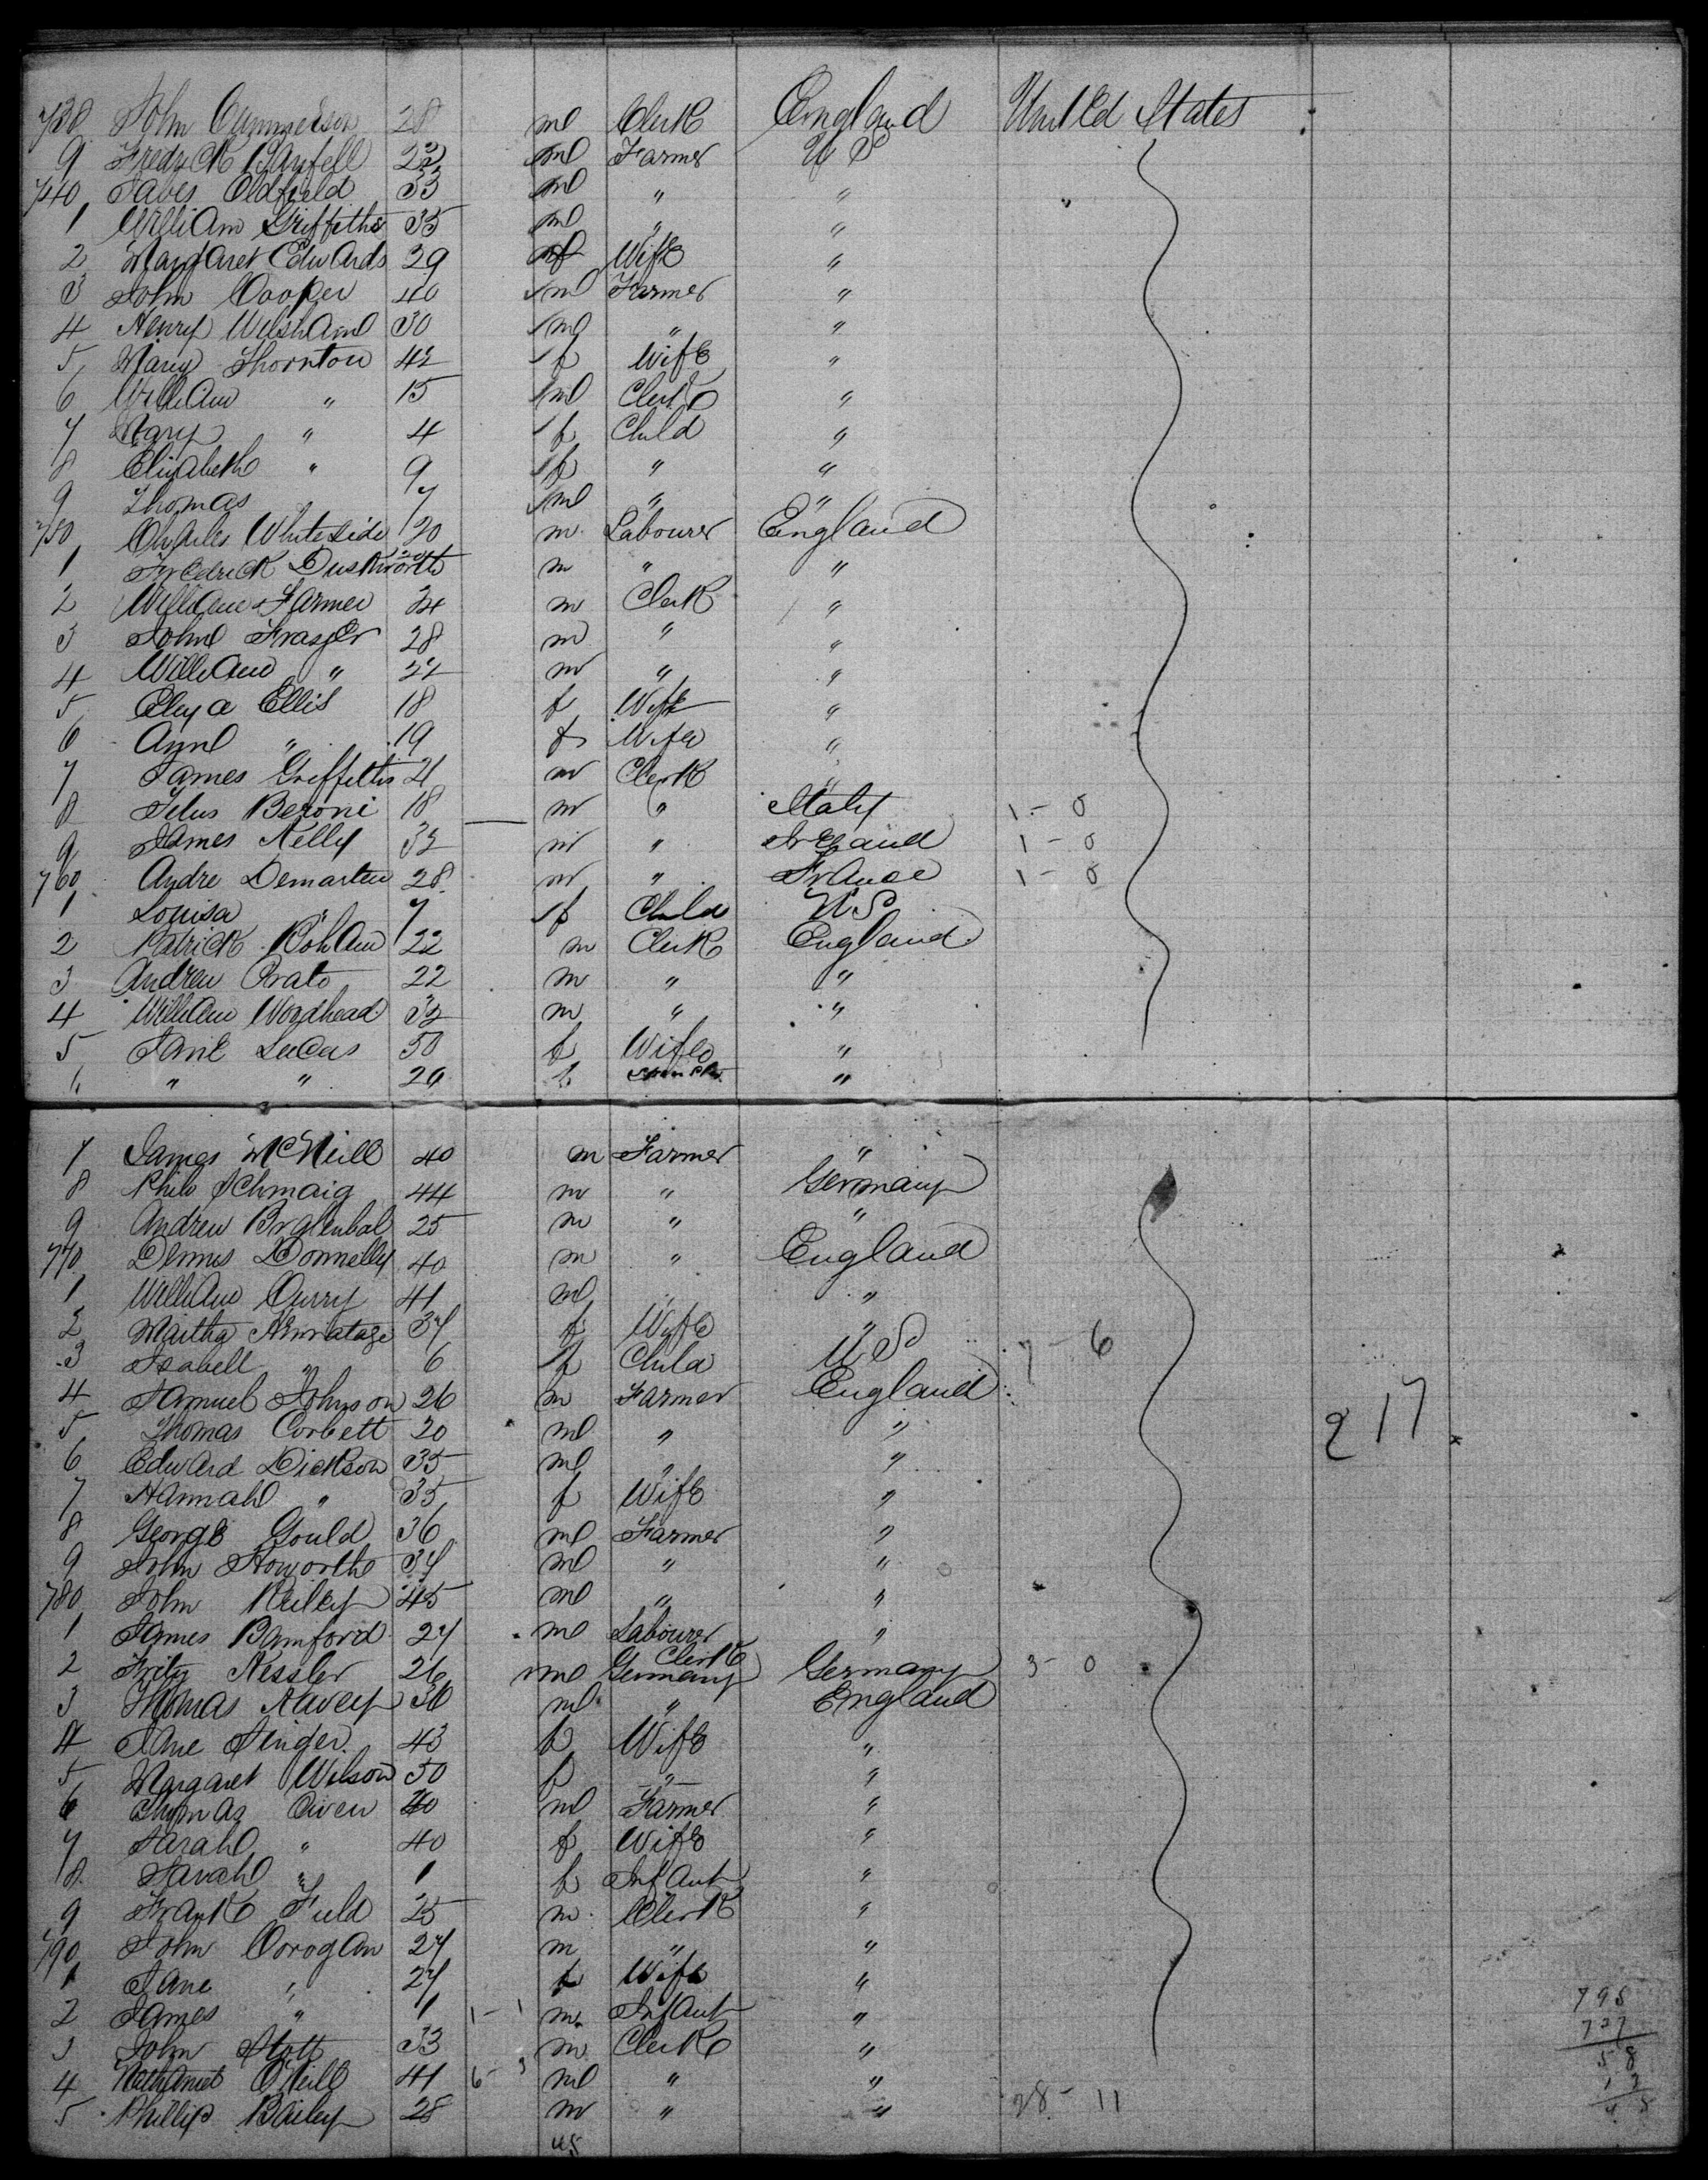 738 John Cummerson 28 m Clerk England United States
9 Fredrick 22 m Farmer U S
740 Oldfield 33 m " " "
1 William Griffiths 35 m " "
2 Margaret Edwards 29 f Wife "
3 John Cooper 40 m Farmer "
4 Henry 30 m " "
5 Mary Thornton 42 f Wife "
6 William " 15 m Clerk "
7 Mary " 4 f Child "
8 Elizabeth " 9 f " "
9 Thomas " 7 m " "
750 Charles Whiteside 20 m Labourer England
1 Fredrick Duckworth m " "
2 William Farmer 24 m Clerk "
3 John Frasger 28 m " "
4 William " 22 m " "
5 Ellis 18 f Wife "
6 Ann " 19 f Wife "
7 James Griffiths 21 m Clerk "
8 Beroni 18 m " Italy 1 - 0
9 James Kelly 32 m " Ireland 1 - 0
760 Andre Demarten 28 m " France 1 - 0
1 Louisa " 7 f Child U S
2 Patrick 22 m Clerk England
3 Andrew 22 m " "
4 William Woodhead 32 m " "
5 Jane Lucas 50 f Wife "
" " 20 f "
7 James McNeill 40 m Farmer "
8 Schmaig 44 m " Germany
9 Andrew 25 m " "
770 Dennis Donnelly 40 m " England
1 William Curry 41 m "
2 Martha Armatage 37 f Wife "
3 Isabell " 6 f Child U S 7 - 6
4 Samuel Johnson 26 m Farmer England
5 Thomas Corbett 20 m " " 217
6 Edward Dickson 35 m " "
7 Hannah " 35 f Wife "
8 George Gould 36 m Farmer "
9 John Howorth 34 m " "
780 John 45 m " "
1 James Bamford 27 m Labourer "
2 Fritz Nessler 26 m Germany Clerk Germany 3 - 0
3 Thomas 36 m " England
4 Jane Singer 43 f Wife "
5 Margaret Wilson 50 f " "
6 Thomas Owen 40 m Farmer "
7 Sarah " 40 f Wife "
8 Sarah " 1 f Infant "
9 Frank Field 25 m Clerk "
790 John Corogan 27 m " "
1 Jane " 27 f Wife "
2 James " 1 1 - 1 m Infant "
3 John Stott 33 m Clerk "
4 Nathaniel O'Neill 41 6 - 3 m " "
5 Phillip Bailey 28 m " " 28 - 11
795
737
58